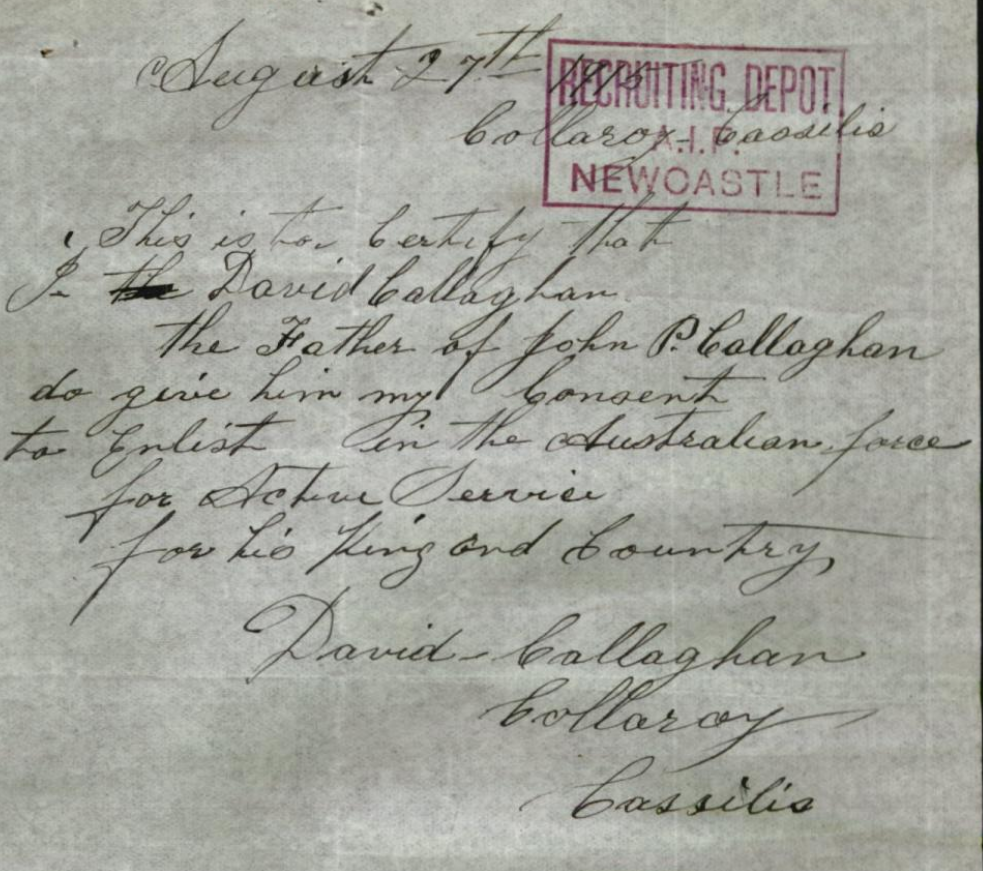 August 27th
Collaroy Cassilis
RECRUITING DEPOT
A.I.F.
NEWCASTLE
This is to Certify that
I David Callaghan
the Father of John P. Callaghan
do give him my Consent
to Enlist in the Australian force
for Active Service
for his King and Country
David - Callaghan
Collaroy
Cassilis